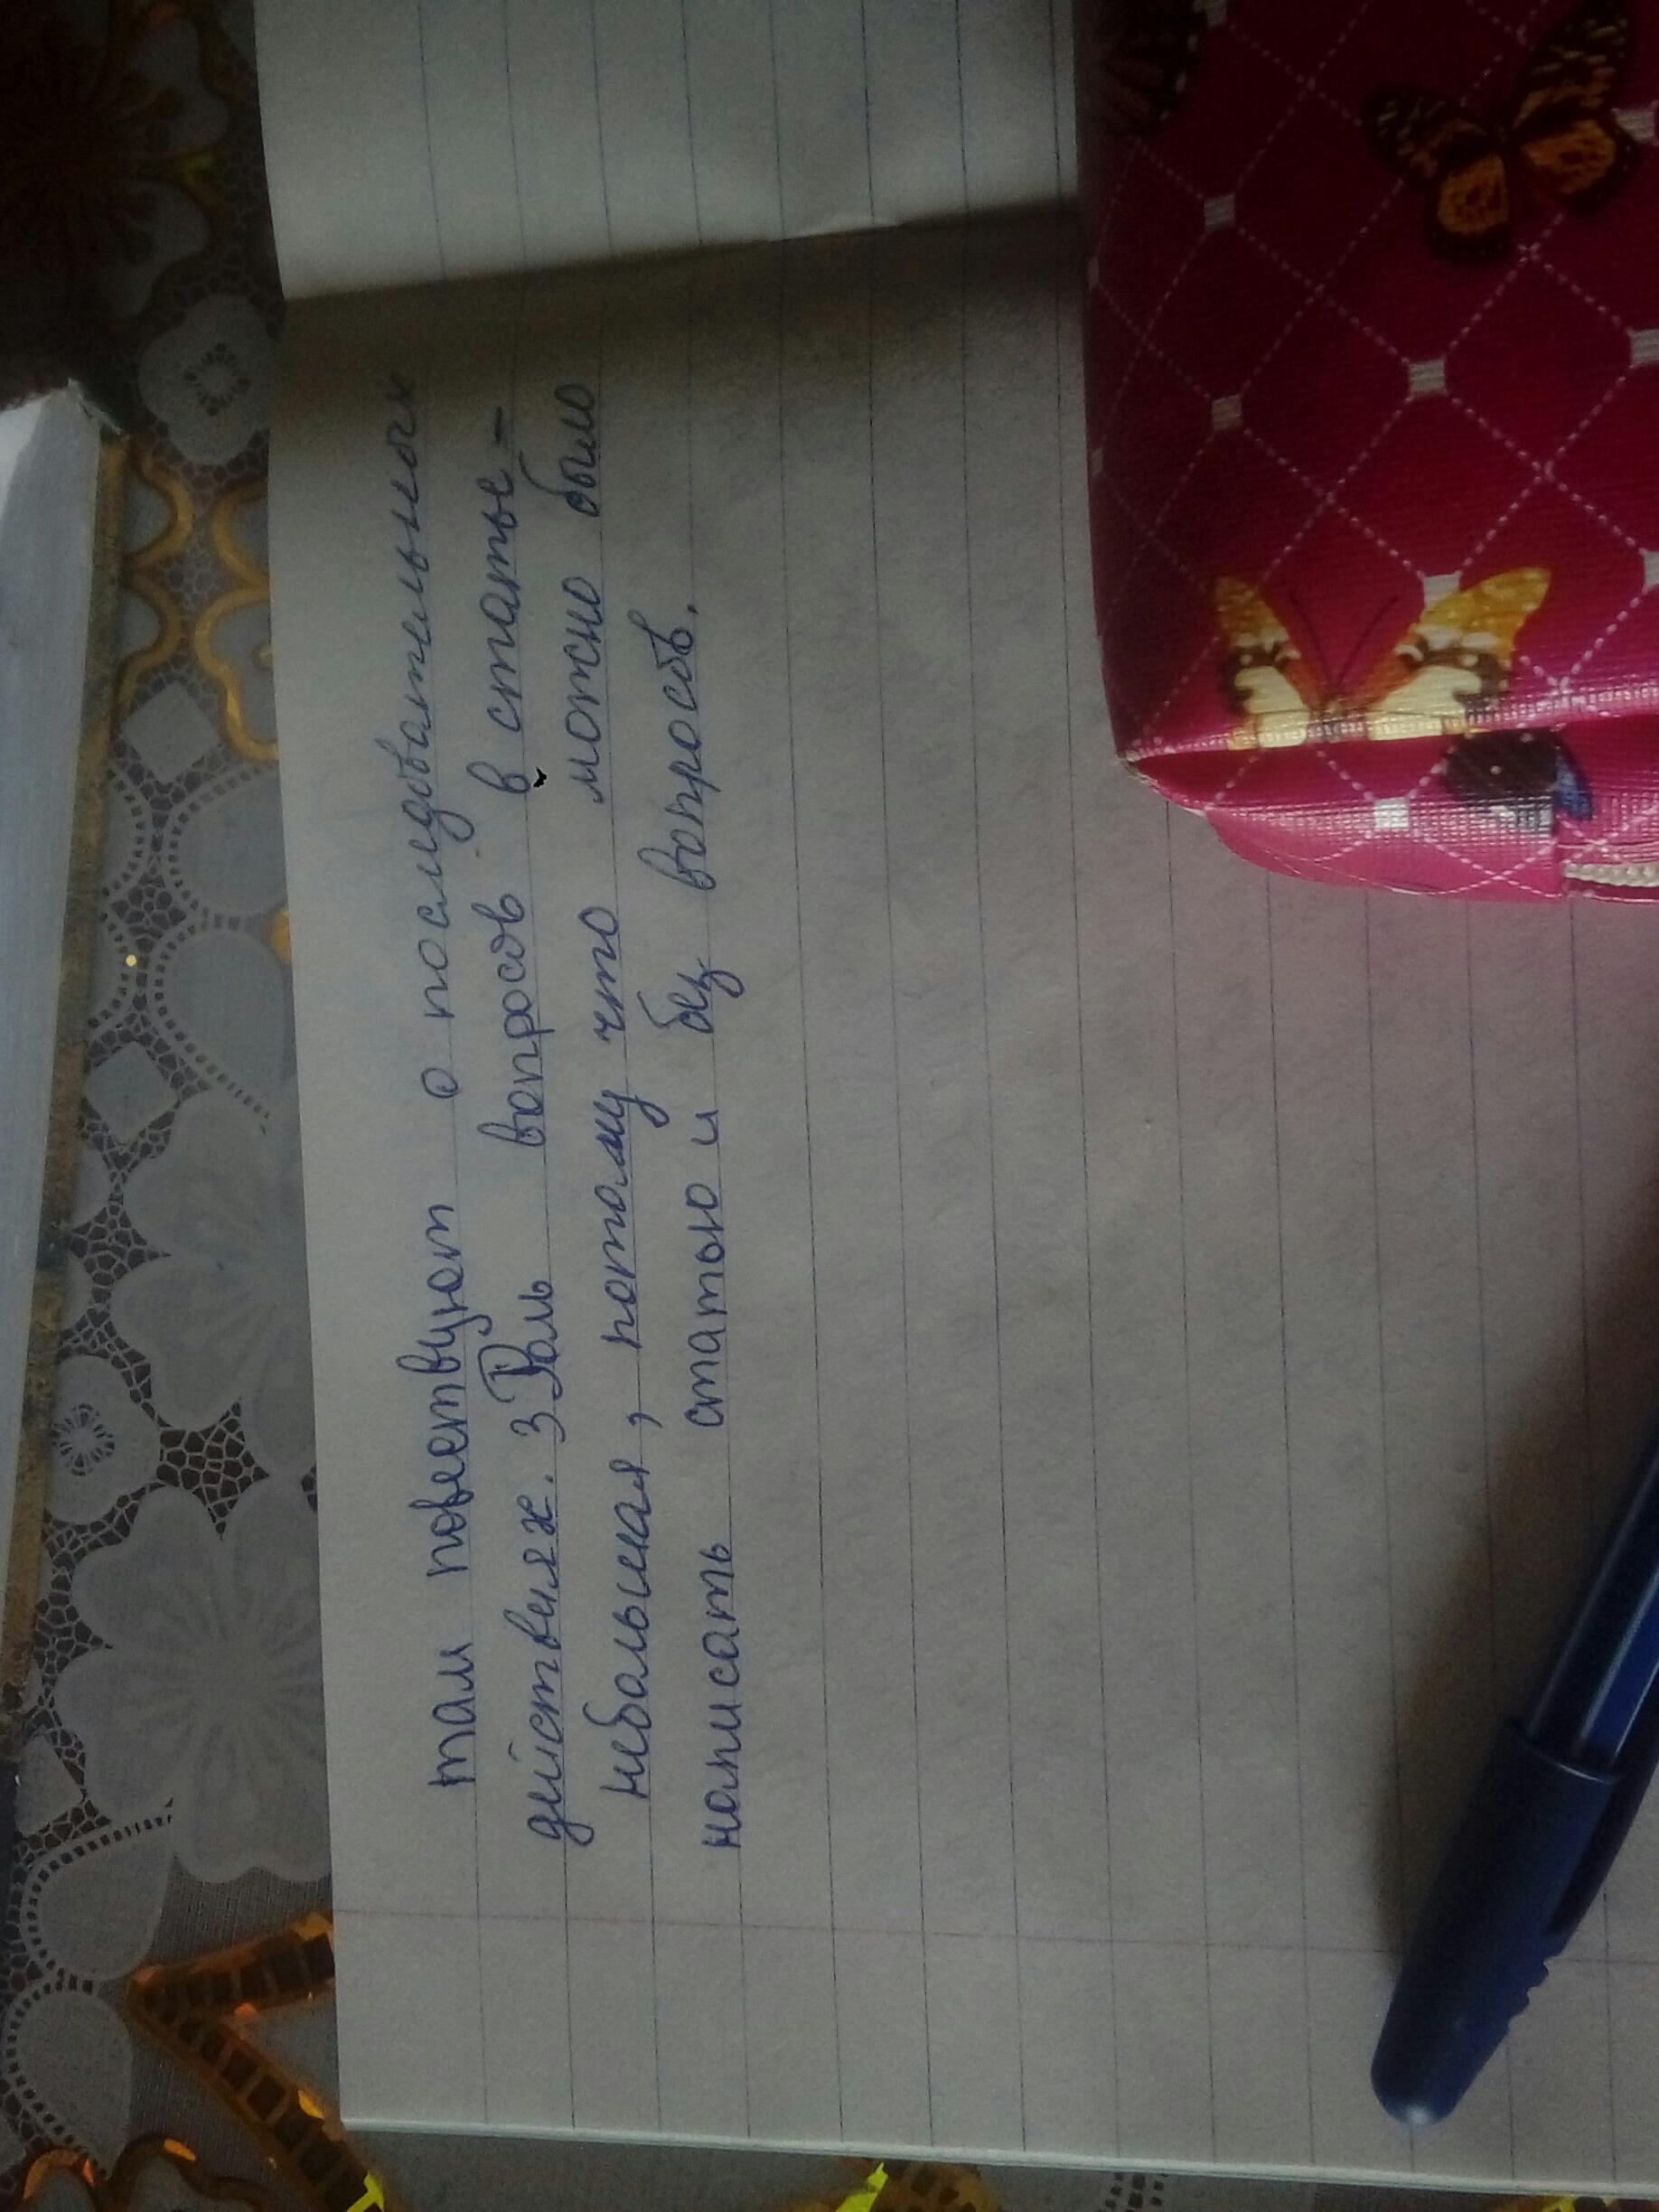 там повествуют о последовательных
действенях. 3 Роль вопросов в статье -
небольшая, потому что можно было
написать статью и без вопросов.